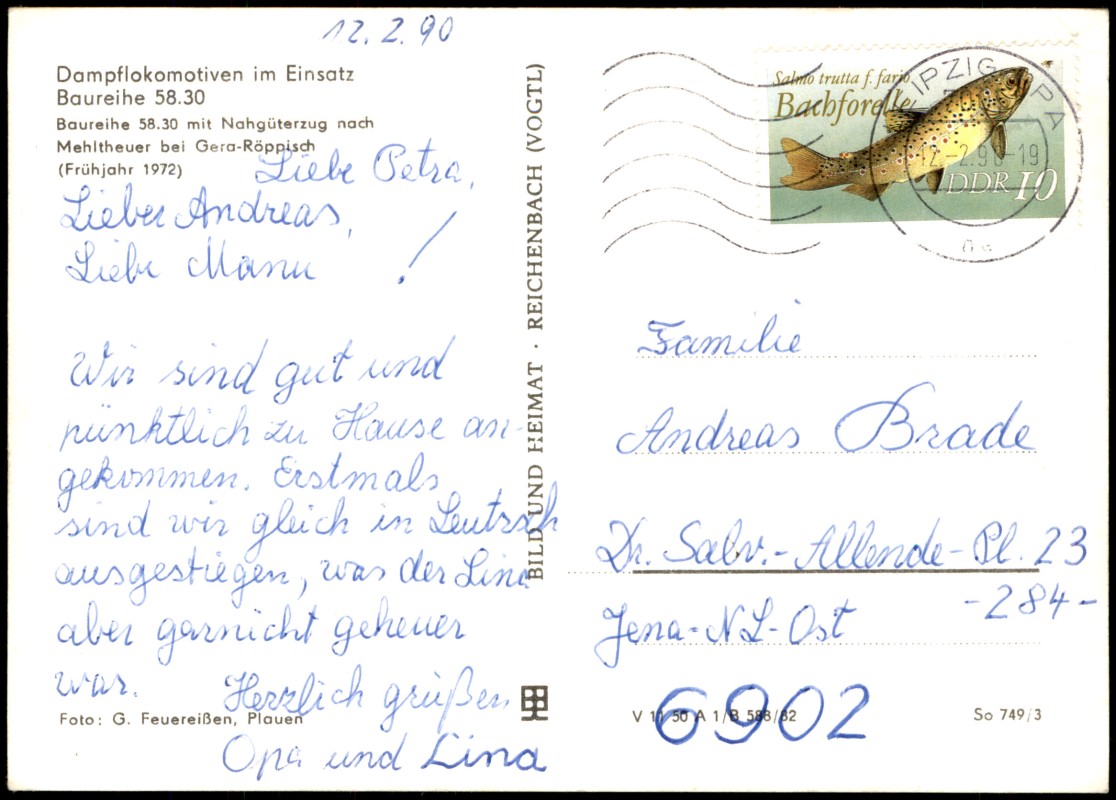 12. 2. 90
Dampflokomotiven im Einsatz
Baureihe 58.30
Baureihe 58.30 mit Nahgüterzug nach
Mehltheuer bei Gera-Röppisch
(Frühjahr 1972)
Liebe Petra,
Lieber Andreas,
Liebe Manu !
Wir sind gut und
pünktlich zu Hause an-
gekommen. Erstmals
sind wir gleich in Leutzsch
ausgestiegen, was der Lina
aber garnicht geheuer
war.
Herzlich grüßen
Foto: G. Feuereißen, Plauen
Opa und Lina
BILD UND HEIMAT · REICHENBACH (VOGTL)
Salmo trutta f. fario
Bachforelle
DDR 10
12.-2.90-19
Familie
Andreas Brade
Dr. Salv.-Allende-Pl. 23
-284-
Jena-NL-Ost
6902
V 11 50 A 1/B 588/82
So 749/3